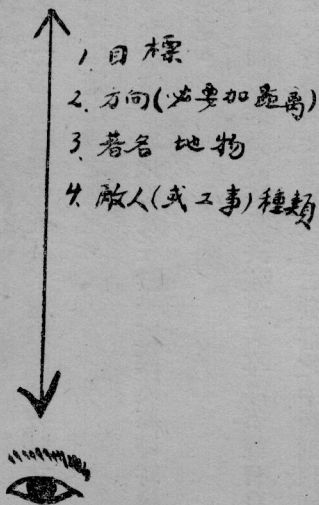 1. 目標
2. 方向(必要加距离)
3. 著名地物
4. 敵人(或工事)種類